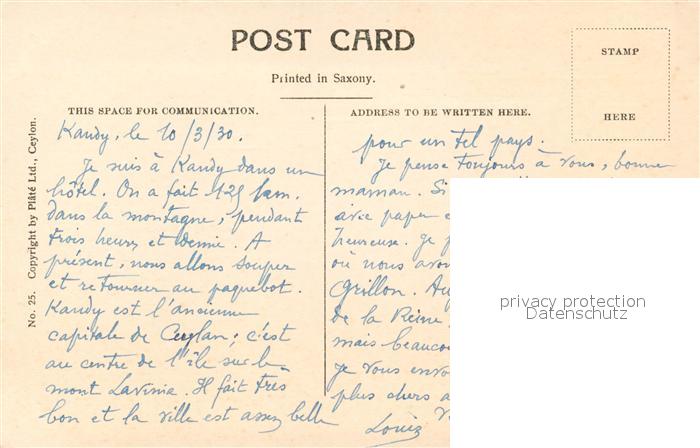 POST CARD
Printed in Saxony.
STAMP
HERE
THIS SPACE FOR COMMUNICATION.
Kandy, le 10/3/30.
Je suis à Kandy dans un
hôtel. On a fait 125 km.
dans la montagne, pendant
trois heures et demie. A
présent, nous allons souper
et retourner au paquebot.
Kandy est l'ancienne
capitale de Ceylan; c'est
au centre de l'île sur le
mont Lavinia. Il fait très
bon et la ville est assez belle
ADDRESS TO BE WRITTEN HERE.
pour un tel pays.
Je pense toujours à vous, bonne
maman. Si
avec papa
heureuse. Je
où nous
Grillon.
de la Reine
mais beaucou
je vous
plus chers
Louis
No. 25. Copyright by Plâté Ltd., Ceylon.
privacy protection
Datenschutz